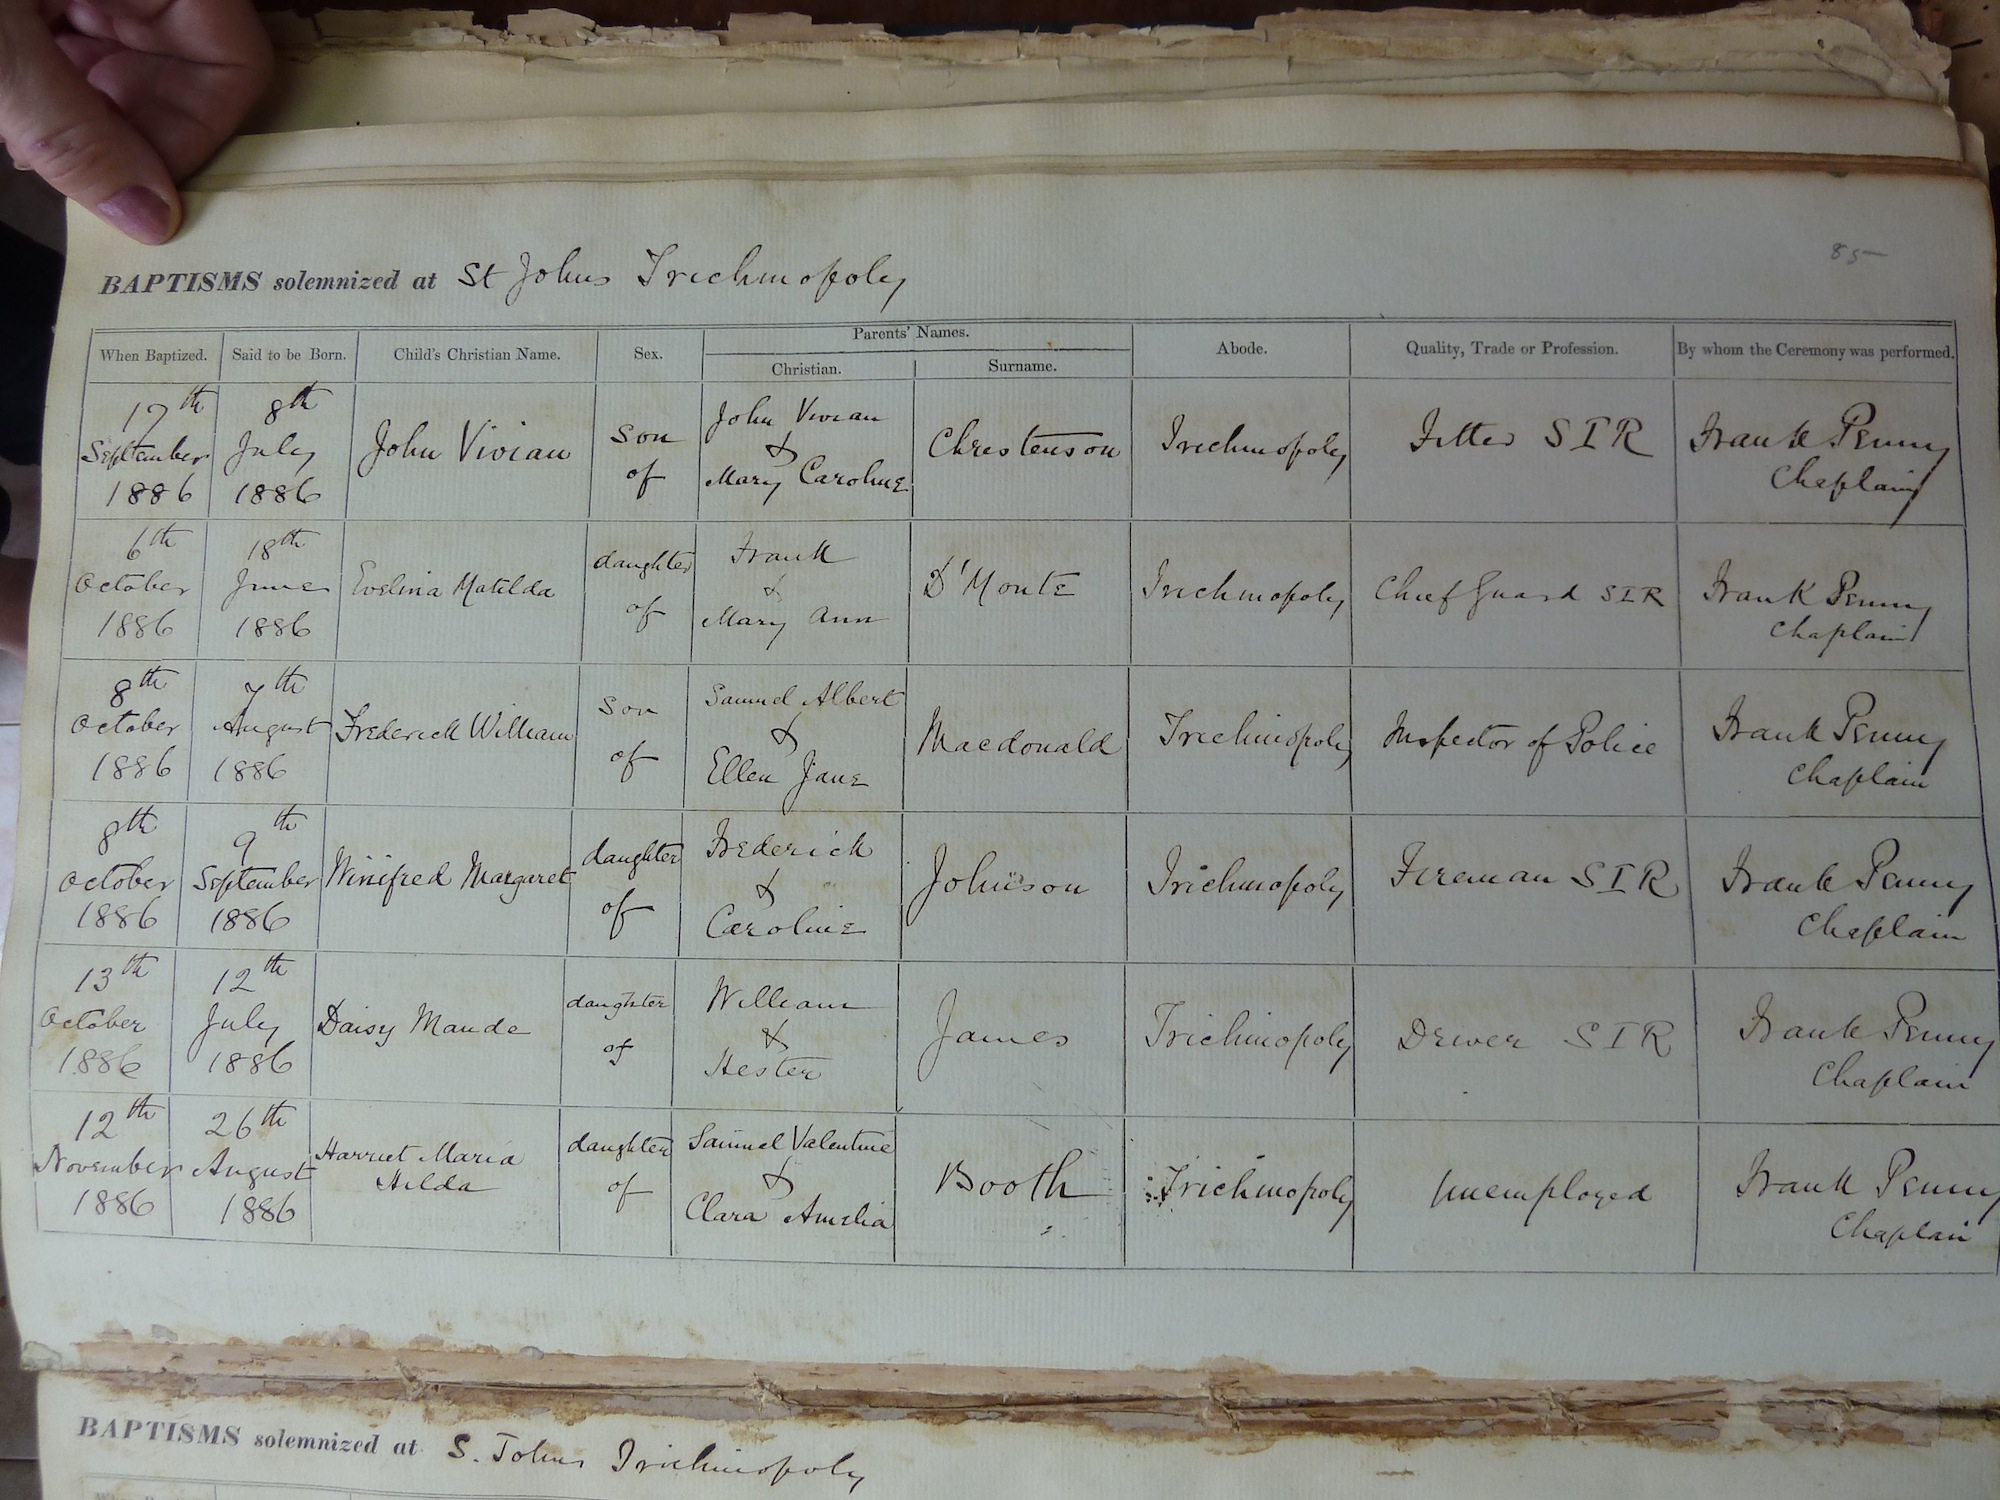 85
BAPTISMS solemnized at St Johns Trichinopoly
When Baptized. Said to be Born. Child's Christian Name. Sex. Parents' Names. Abode. Quality, Trade or Profession. By whom the Ceremony was performed.
Christian. Surname.
17th September 1886 8th July 1886 John Vivian son of John Vivian & Mary Caroline Christenson Trichinopoly Fitter SIR Frank Penny Chaplain
6th October 1886 18th June 1886 Evelina Matilda daughter of Frank & Mary Ann D'Monte Trichinopoly Chief Guard SIR Frank Penny Chaplain
8th October 1886 7th August 1886 Frederick William son of Samuel Albert & Ellen Jane Macdonald Trichinopoly Inspector of Police Frank Penny Chaplain
8th October 1886 9th September 1886 Winifred Margaret daughter of Frederick & Caroline Johnson Trichinopoly Fireman SIR Frank Penny Chaplain
13th October 1886 12th July 1886 Daisy Maude daughter of William & Hester James Trichinopoly Driver SIR Frank Penny Chaplain
12th November 1886 26th August 1886 Harriet Maria Hilda daughter of Samuel Valentine & Clara Amelia Booth Trichinopoly Unemployed Frank Penny Chaplain
BAPTISMS solemnized at S. Johns Trichinopoly